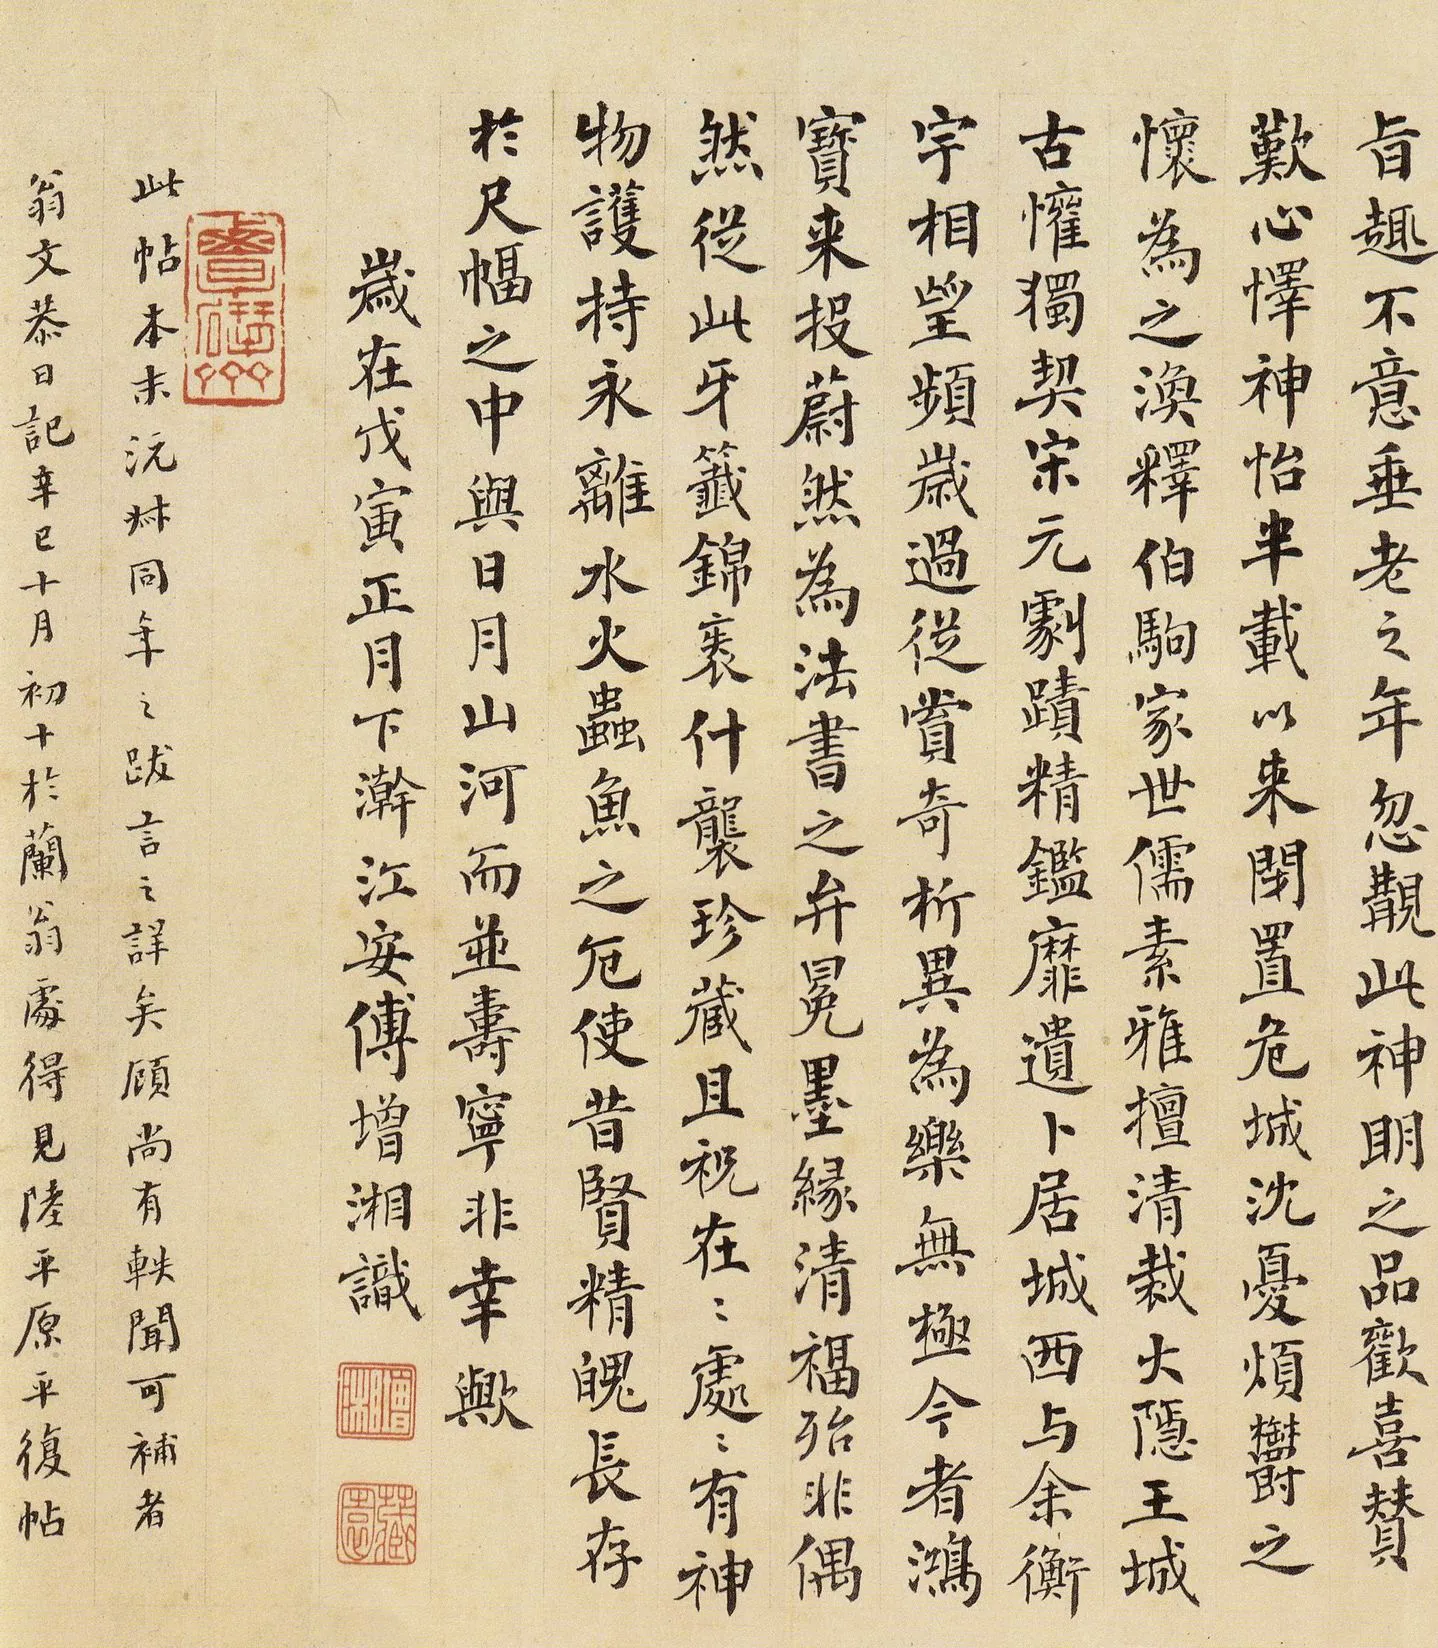 旨趣不意垂老之年忽覩此神明之品歡喜賛
歎心懌神怡半載以来閉置危城沈憂煩鬱之
懷為之渙釋伯駒家世儒素雅擅清裁大隱王城
古懽獨契宋元劇蹟精鑑靡遺卜居城西与余衡
宇相望頻歲過從賞奇析異為樂無極今者鴻
寶来投蔚然為法書之弁冕墨緣清福殆非偶
然從此牙籤錦裹什襲珍藏且祝在:處:有神
物護持永離水火蟲魚之厄使昔賢精魄長存
於尺幅之中與日月山河而並壽寧非幸歟
歲在戊寅正月下澣江安傅增湘識
增湘
藏園
此帖本末沅叔同年之跋言之詳矣顧尚有軼聞可補者
翁文恭日記辛巳十月初十於蘭翁處得見陸平原平復帖